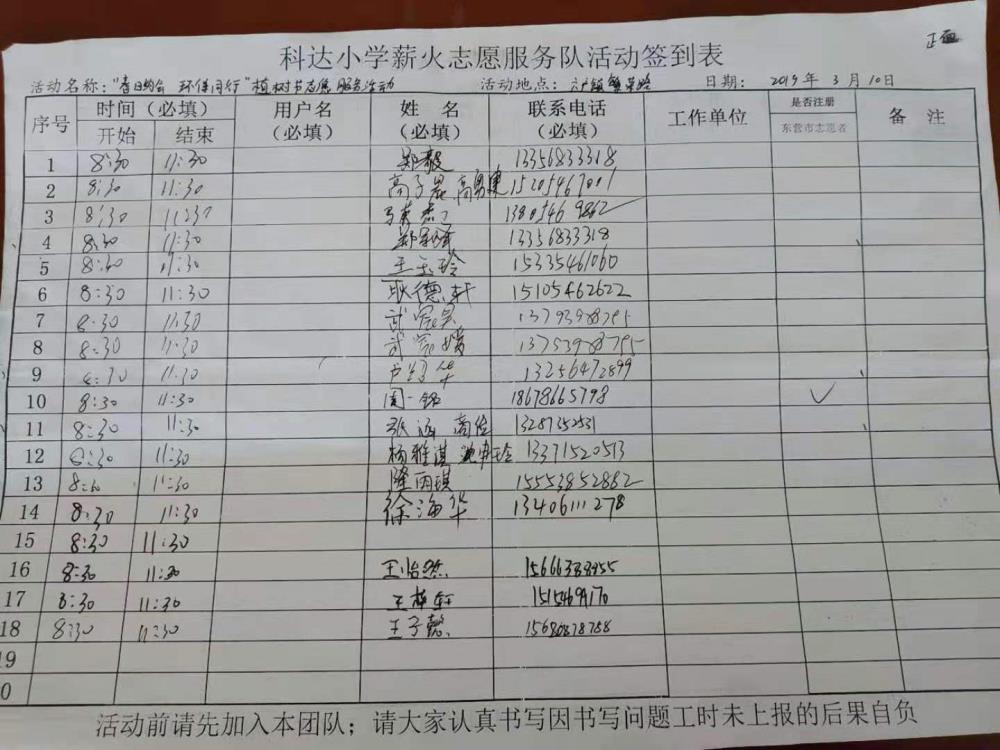 正面
科达小学薪火志愿服务队活动签到表
活动名称："春日约会 环保同行"植树节志愿服务活动 活动地点： 日期： 2019年3月10日
序号 时间（必填） 用户名（必填） 姓 名（必填） 联系电话（必填） 工作单位 是否注册 备 注
开始 结束 东营市志愿者
1 8:30 11:30 郑毅 13356833318
2 8:30 11:30 高子晨 高勇建 15205467001
3 8:30 11:30 13805469862
4 8:30 11:30 13356833318
5 8:30 11:30 王玉玲 15335461060
6 8:30 11:30 耿德轩 15105462622
7 8:30 11:30
8 8:30 11:30
9 8:30 11:30 13256472899
10 8:30 11:30 周一铭 18678665798 ✓
11 8:30 11:30 张涵 高俭 13287352531
12 8:30 11:30 杨雅淇 13371520513
13 8:30 11:30 隆丙琪 15553852882
14 8:30 11:30 徐海华 13406111278
15 8:30 11:30
16 8:30 11:30 王怡然
17 8:30 11:30 王梓轩 15154699170
18 8:30 11:30 王子懿
19
活动前请先加入本团队；请大家认真书写因书写问题工时未上报的后果自负